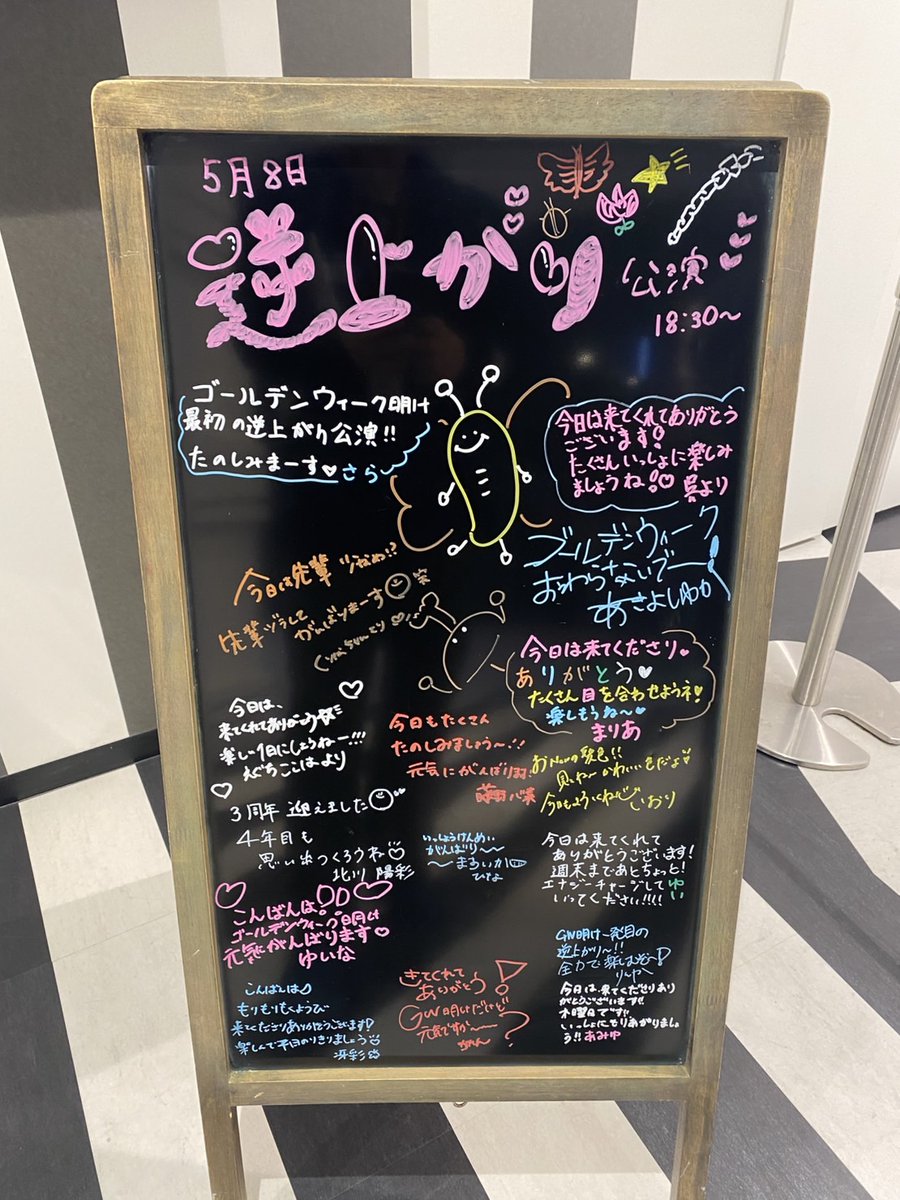 5月8日
逆上がり
公演
18:30~
ゴールデンウィーク明け
最初の逆上がり公演!!
たのしみまーす♥ さら
今日は来てくれてありがとう
ございます!
たくさんいっしょに楽しみ
ましょうね!♡ 呉より
ゴールデンウィーク
おわらないでー!
あきよしゆか
今日は先輩少なめ!?
先輩ヅラして
がんばりまーす 笑
今日は来てくださり♥
ありがとう♥
たくさん目を合わせようネ!
楽しもうね~♥
まりあ
今日は、
来てくれてありがとう
楽しい1日にしょうねー!!!
えぐちここはより
今日もたくさん
たのしみましょう~!!
元気にがんばります
おNewの髪色!!
見てね~ かわいい色だよ
今日もよろしくね いおり
3周年 迎えました
4年目も
思い出つくろうね♡
北川 陽彩
いっしょうけんめい
がんばり~
ひなよ
今日は来てくれて
ありがとうございます!
週末まであとちょっと!
エナジーチャージして
いってください!!!! ゆい
こんばんは
ゴールデンウィーク明け
元気がんばります♥
ゆいな
GW明け一発目の
逆上がり~!!
全力で楽しむぞ~!
こんばんは♪
もりもりもくようび
来てくださりありがとうございます!
楽しんで平日のりきりましょう
冴彩
きてくれて
ありがとう!
GW明けだけど
元気ですか~?
今日は来てくださりあり
がとうございます!!
木曜日です!!
いっしょにもりあがりましょ
う!! あみゆ